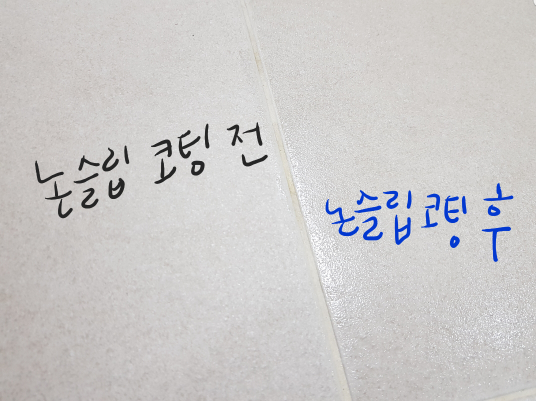 논슬립 코팅 전
논슬립코팅 후